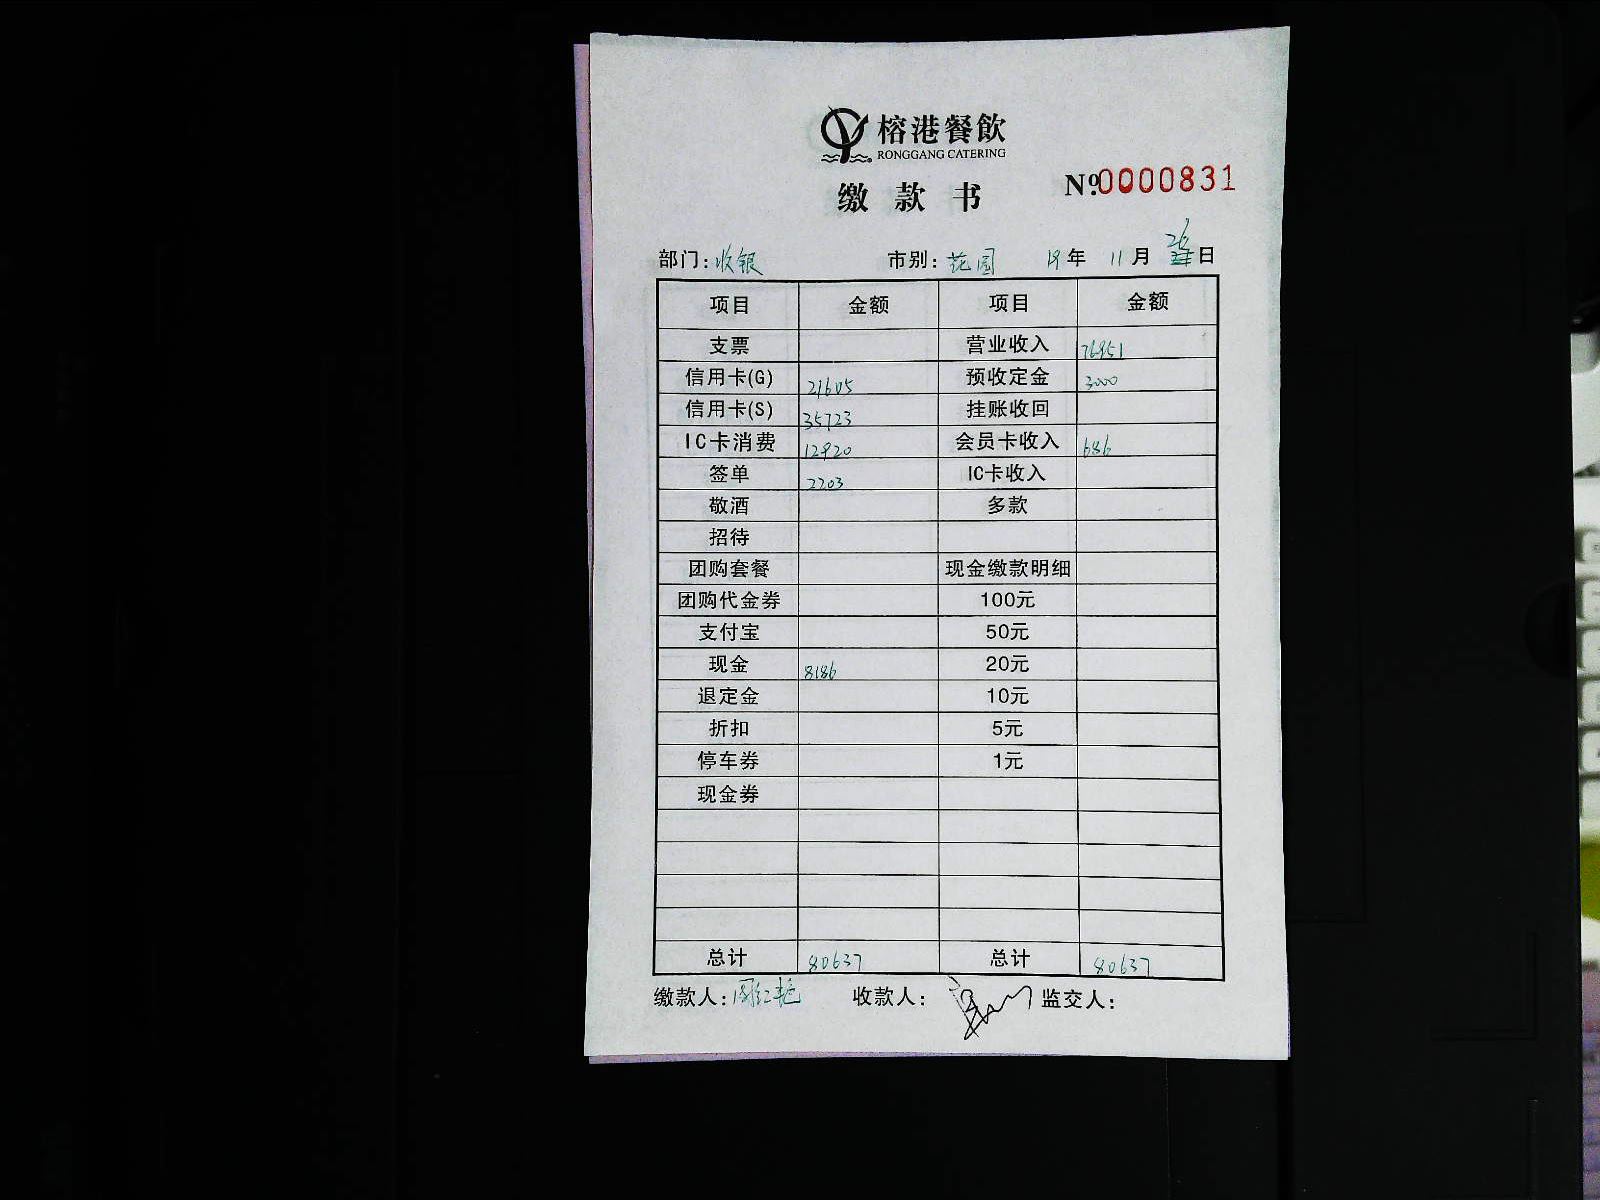 榕港餐飲
RONGGANG CATERING
缴款书 Nº 0000831
部门：收银 市别：花园 19年 11月 26日
项目 金额 项目 金额
支票 营业收入 76951
信用卡(G) 21605 预收定金 3000
信用卡(S) 35723 挂账收回
IC卡消费 12920 会员卡收入 686
签单 2203 IC卡收入
敬酒 多款
招待
团购套餐 现金缴款明细
团购代金券 100元
支付宝 50元
现金 8186 20元
退定金 10元
折扣 5元
停车券 1元
现金券
总计 80637 总计 80637
缴款人：周红艳 收款人： 监交人：